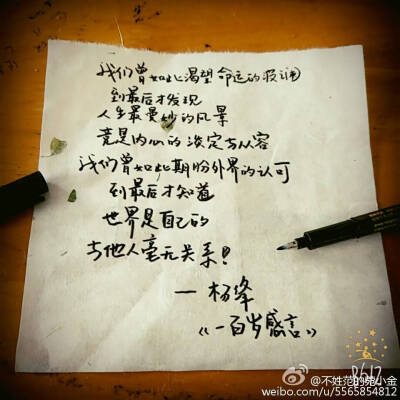 我们曾如此渴望命运的波澜
到最后才发现
人生最曼妙的风景
竟是内心的淡定与从容
我们曾如此期盼外界的认可
到最后才知道
世界是自己的
与他人毫无关系!
—杨绛
《一百岁感言》
B612
@不姓范的范小金
weibo.com/u/5565854812